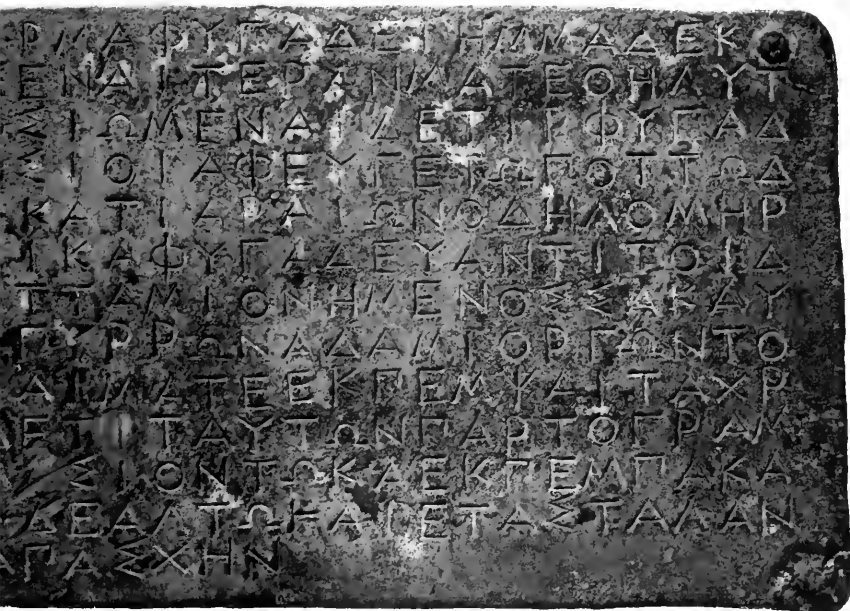 ΡΜΑΦΥΓΑΔΕΙΗΜΜΑΔΕΚ
ΕΝΑΙΤΕΡΑΝΜΑΤΕΘΗΛΥΤ
ΣΙΩΜΕΝΑΙΔΕΤΙΡΦΥΓΑΔ
ΣΙΟΙΑΦΕΥΓΕΤΩΠΟΤΤΩΔ
ΚΑΤΙΑΡΑΙΩΝΟΔΗΛΟΜΗΡ
ΙΚΑΦΥΓΑΔΕΥΑΝΤΙΤΟΙΔ
ΤΤΑΜΙΟΝΗΜΕΝΟΣΣΑΚΑΥ
ΠΥΡΡΩΝΑΔΑΜΙΟΡΓΩΝΤΟ
ΑΙΜΑΤΕΕΚΠΕΜΨΑΙΤΑΧΡ
ΔΕΤΙΤΑΥΤΩΝΠΑΡΤΟΓΡΑΜ
ΣΙΟΝΤΩΚΑΕΚΠΕΜΠΑΚΑ
ΑΔΕΑΛΤΩΗΑΙΕΤΑΣΤΑΛΑΝ
ΑΠΑΣΧΗΝ